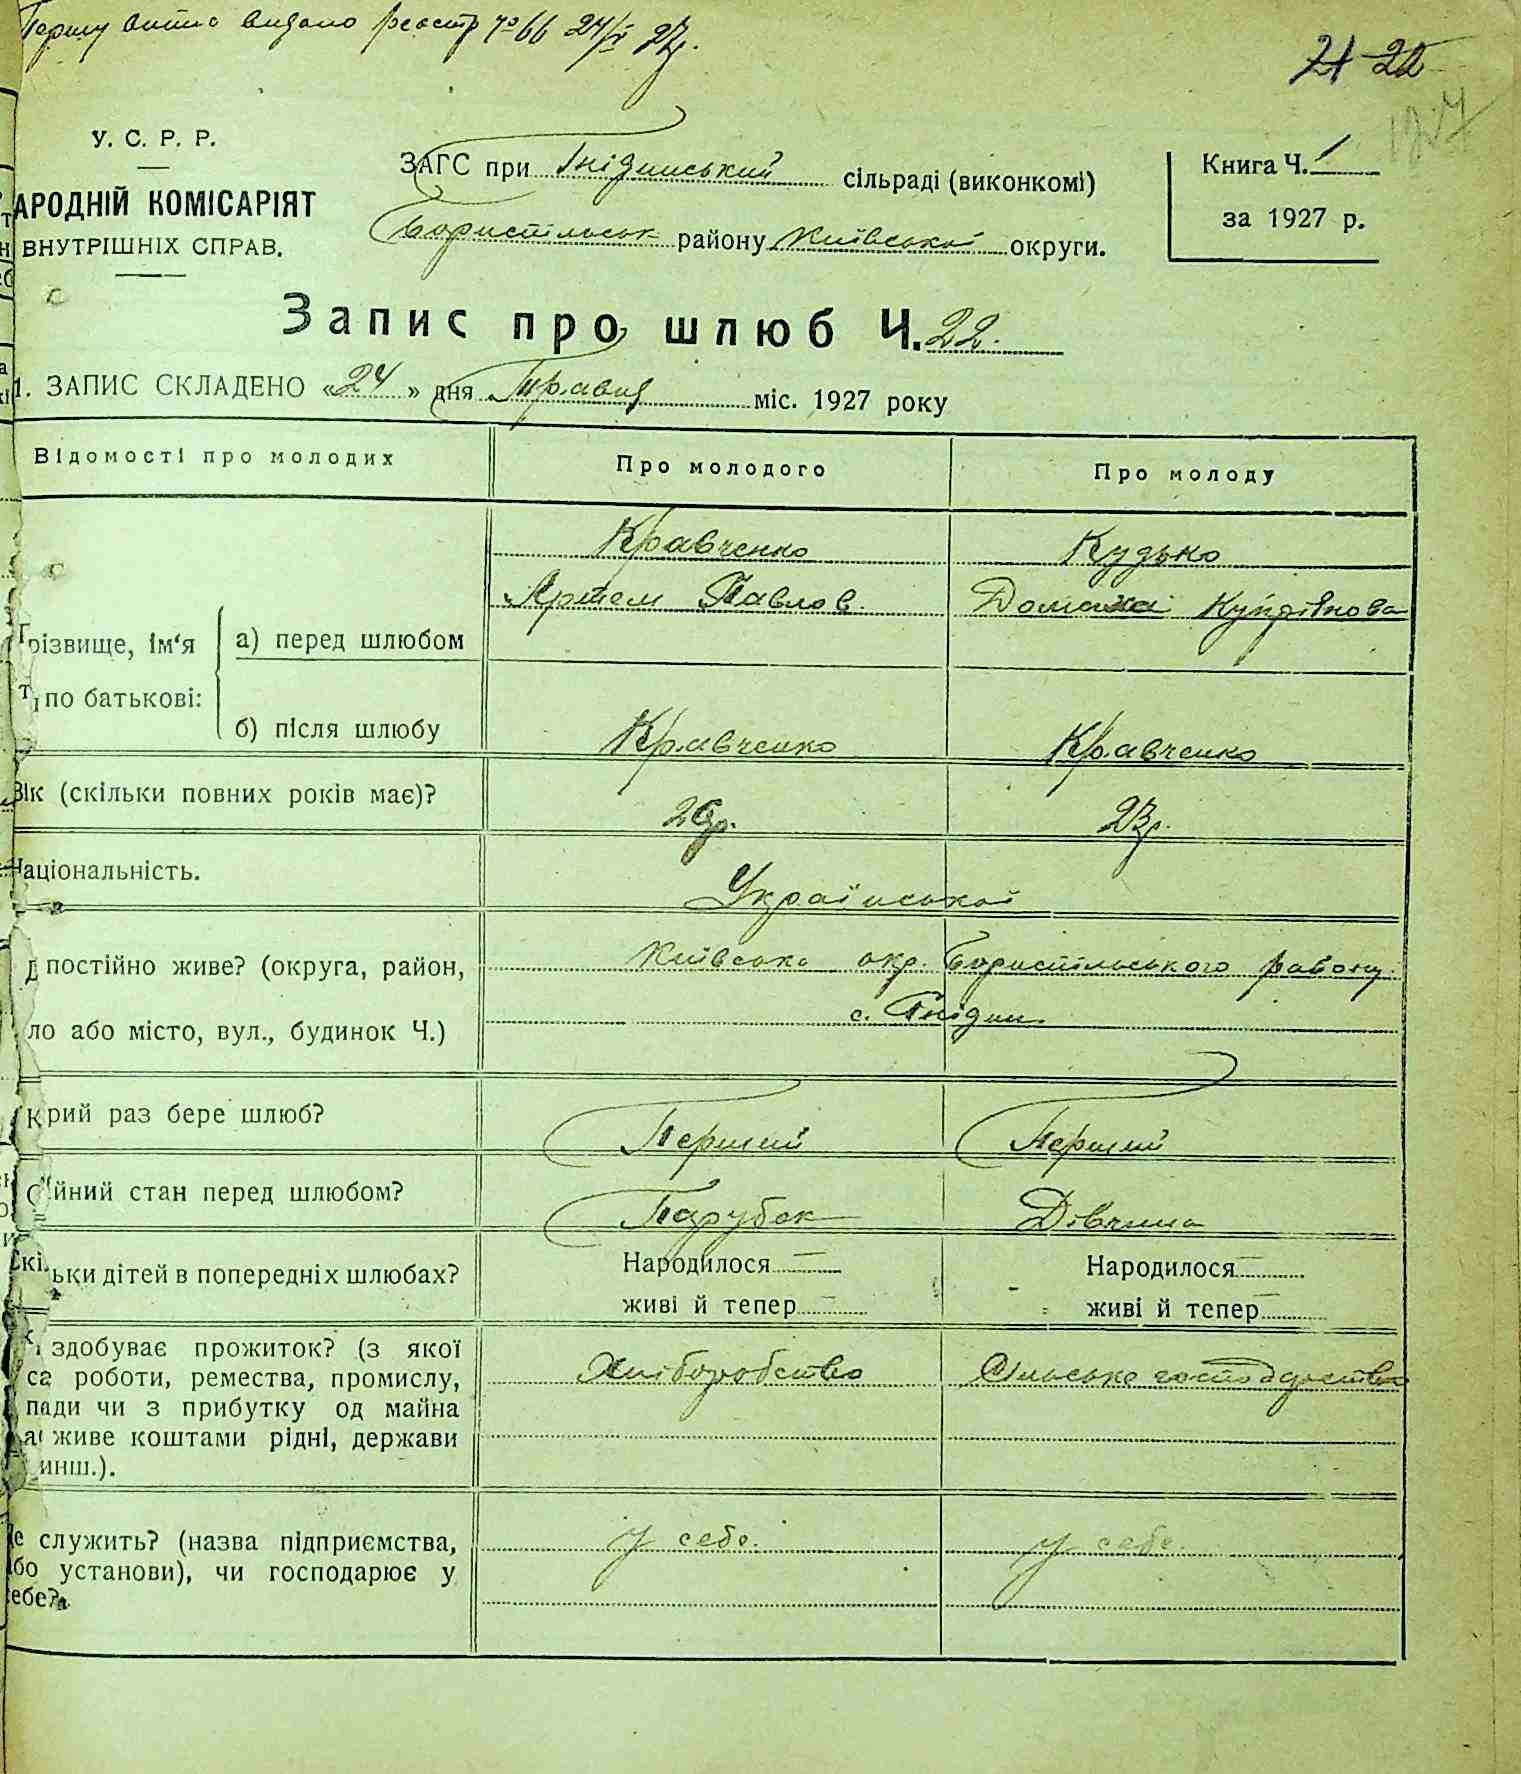 Першу витис видано реєстр № 66 24/V 27р.
21 22
127
У. С. Р. Р.
АРОДНІЙ КОМІСАРІЯТ
ВНУТРІШНІХ СПРАВ.
ЗАГС при Гнідинський сільраді (виконкомі)
Бориспільськ району Київської округи.
Книга Ч. 1
за 1927 р.
Запис про шлюб Ч. 22.
1. ЗАПИС СКЛАДЕНО «24» дня Травня міс. 1927 року
Відомості про молодих Про молодого Про молоду
Кравченко Кудько
Артем Павлов. Домаха Купріянова
різвище, ім'я
ті по батькові:
а) перед шлюбом
б) після шлюбу Кравченко Кравченко
Вік (скільки повних років має)? 26р. 23р.
Національність. Української
Д постійно живе? (округа, район, Київська окр. Бориспільського району.
ло або місто, вул., будинок Ч.) с. Гнідин
К рий раз бере шлюб? Перший Перший
йний стан перед шлюбом? Парубок Дівчина
Скільки дітей в попередніх шлюбах? Народилося — Народилося —
живі й тепер — живі й тепер —
здобуває прожиток? (з якої Хліборобство Сільське господарство
са роботи, ремества, промислу,
пади чи з прибутку од майна
а живе коштами рідні, держави
инш.).
Де служить? (назва підприємства, у себе. у себе.
або установи), чи господарює у
себе?